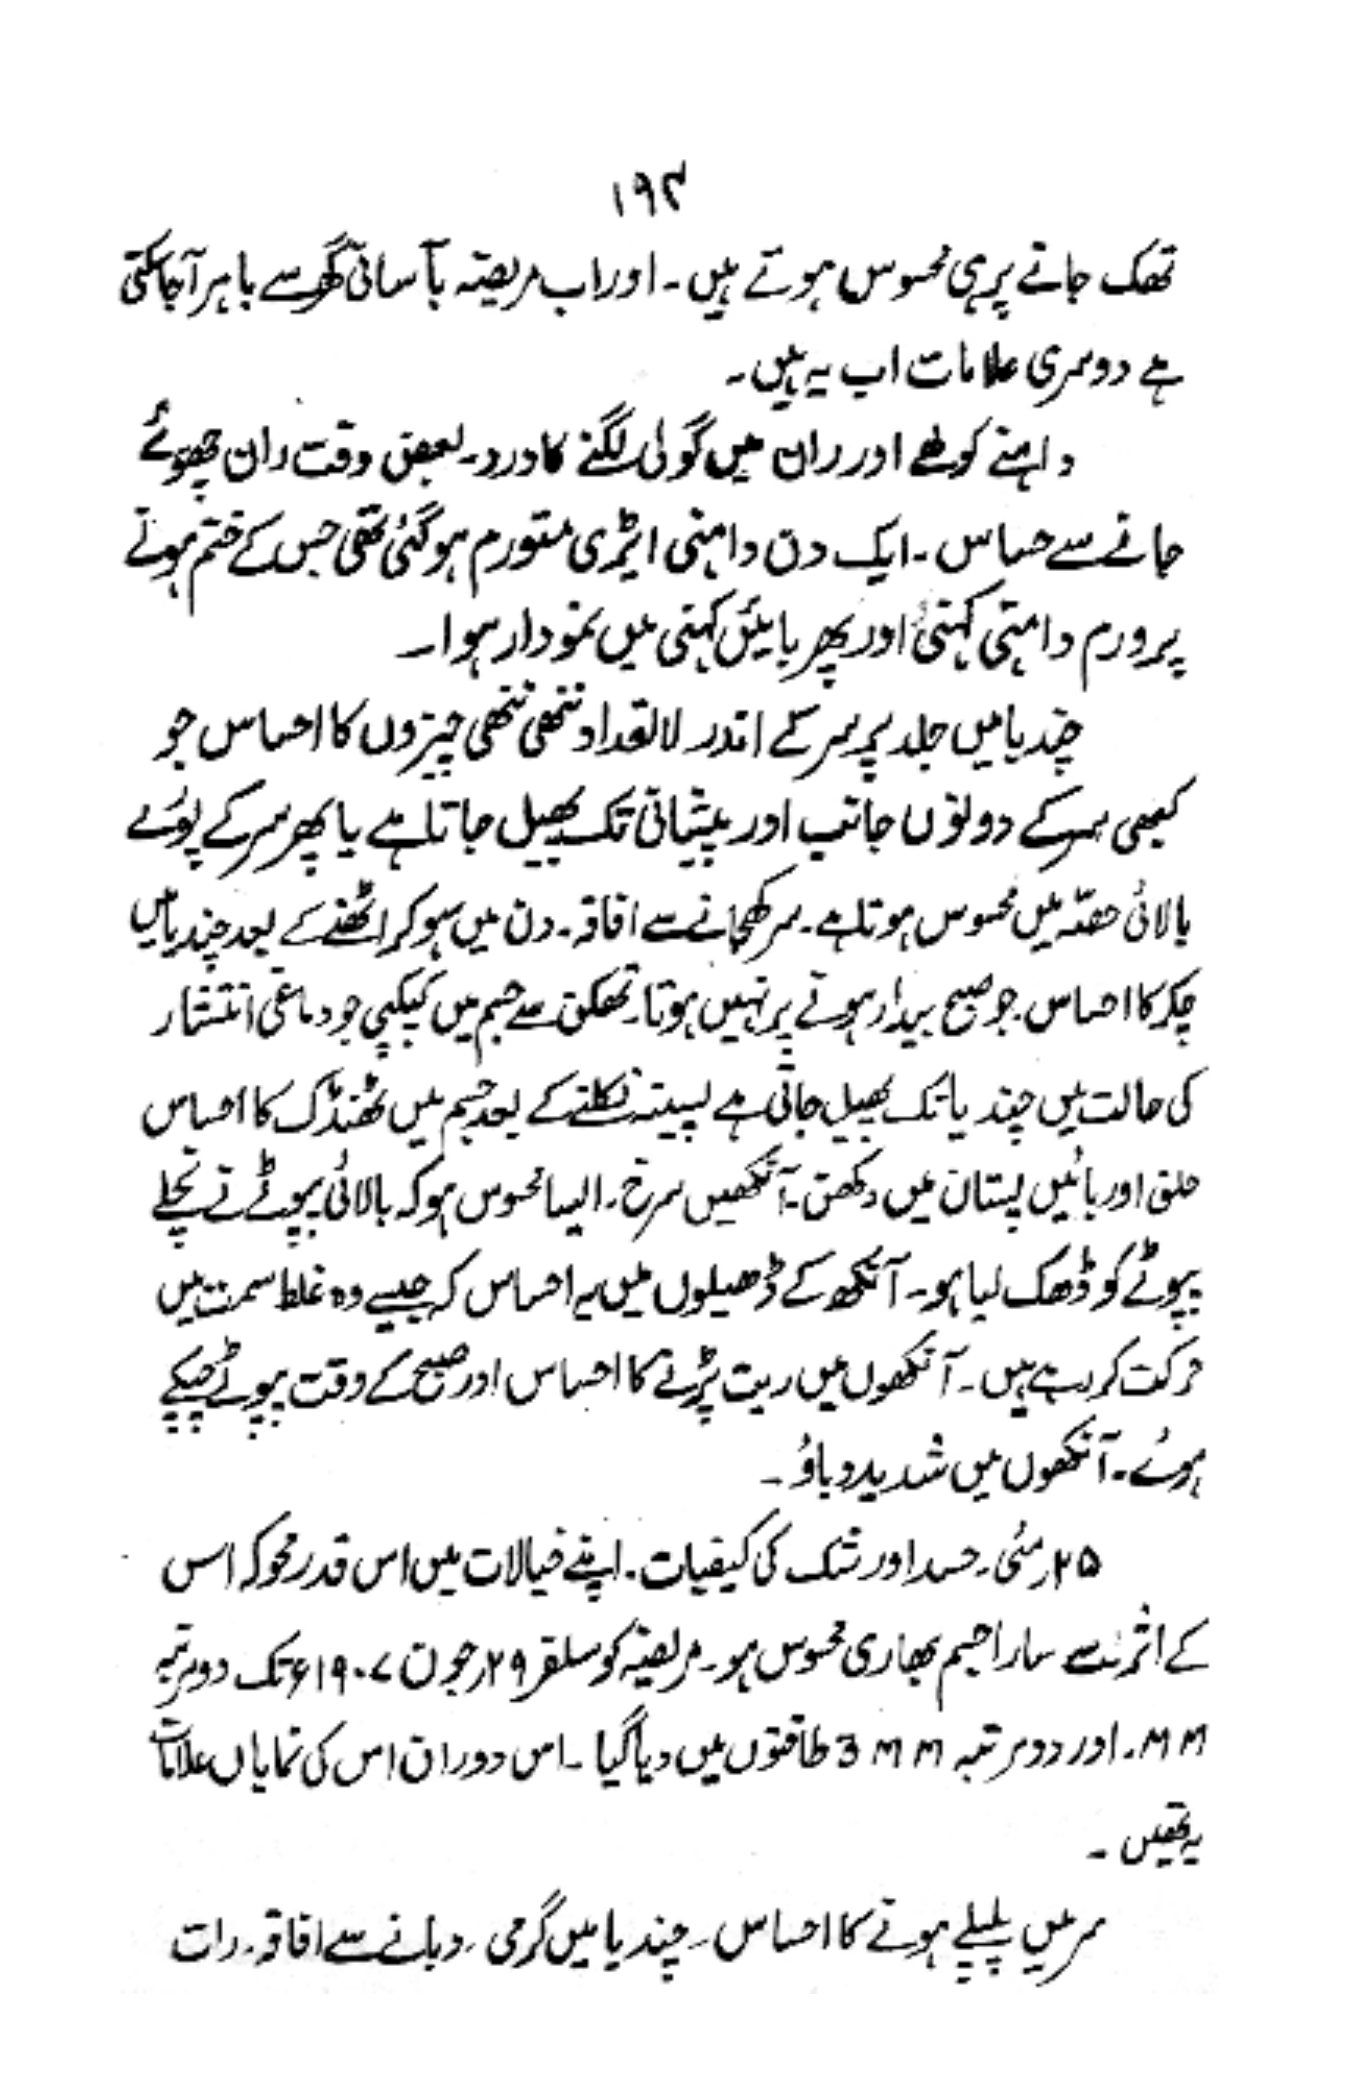 ۱۹۳
تھک جانے پر ہی محسوس ہوتے ہیں۔ اور اب مریضہ بآسانی گھر سے باہر آ جا سکتی
ہے دوسری علامات اب یہ ہیں۔
داہنے کولھے اور ران میں گولی لگنے کا درد۔ بعض وقت ران چھوئے
جانے سے حساس۔ ایک دن داہنی ایڑی متورم ہو گئی تھی جس کے ختم ہونے
پر ورم داہنی کہنی اور پھر بائیں کہنی میں نمودار ہوا۔
چندیا میں جلد پر سر کے اندر لا تعداد ننھی ننھی چیزوں کا احساس جو
کبھی سر کے دونوں جانب اور پیشانی تک پھیل جاتا ہے یا پھر سر کے پورے
بالائی حصّہ میں محسوس ہوتا ہے۔ سر کھجانے سے افاقہ۔ دن میں سو کر اٹھنے کے بعد چندیا میں
چکر کا احساس جو صبح بیدار ہونے پر نہیں ہوتا۔ تھکن سے جسم میں کپکپی جو دماغی انتشار
کی حالت میں چندیا تک پھیل جاتی ہے پسینہ نکلنے کے بعد جسم میں ٹھنڈک کا احساس
حلق اور بائیں پستان میں دکھن۔ آنکھیں سرخ۔ ایسا محسوس ہو کہ بالائی پپوٹے نے نچلے
پپوٹے کو ڈھک لیا ہو۔ آنکھ کے ڈھیلوں میں یہ احساس کہ جیسے وہ غلط سمت میں
حرکت کر رہے ہیں۔ آنکھوں میں ریت پڑنے کا احساس اور صبح کے وقت پپوٹے چپکے
ہوئے۔ آنکھوں میں شدید دباؤ۔
۲۵ر مئی۔ حسد اور شک کی کیفیات۔ اپنے خیالات میں اس قدر محو کہ اس
کے اثر سے سارا جسم بھاری محسوس ہو۔ مریضہ کو سلفر ۲۹ر جون ۱۹۰۷ء تک دو مرتبہ
MM۔ اور دو مرتبہ 3 MM طاقتوں میں دیا گیا۔ اس دوران اس کی نمایاں علامات
یہ تھیں۔
سر میں پلپلے ہونے کا احساس۔ چندیا میں گرمی۔ دبانے سے افاقہ۔ رات